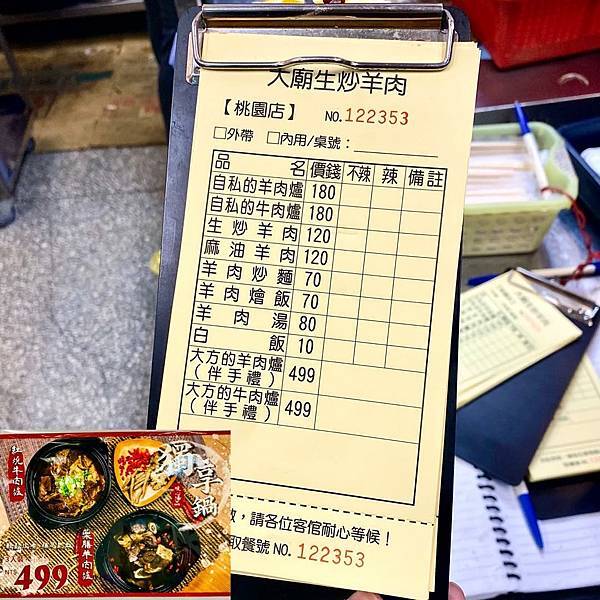 大廟生炒羊肉
【桃園店】 NO.122353
□外帶 □內用/桌號：
品名 價錢 不辣 辣 備註
自私的羊肉爐 180
自私的牛肉爐 180
生炒羊肉 120
麻油羊肉 120
羊肉炒麵 70
羊肉燴飯 70
羊肉湯 80
白飯 10
大方的羊肉爐
（伴手禮） 499
大方的牛肉爐
（伴手禮） 499
，請各位客倌耐心等候！
取餐號 NO. 122353
紅燒牛肉爐
獨享鍋
柴燒羊肉爐
499